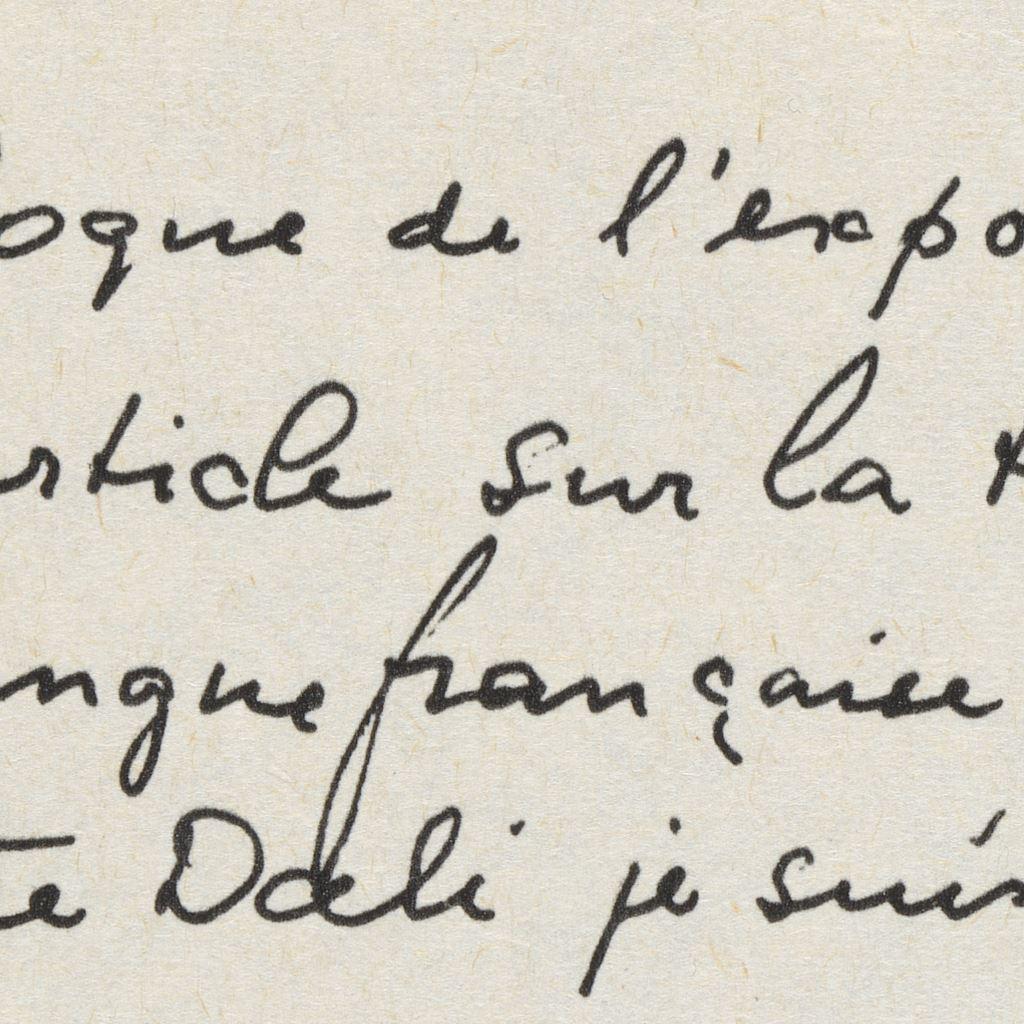 ogue de l'expo
rticle sur la
ngue française
te Dali je suis